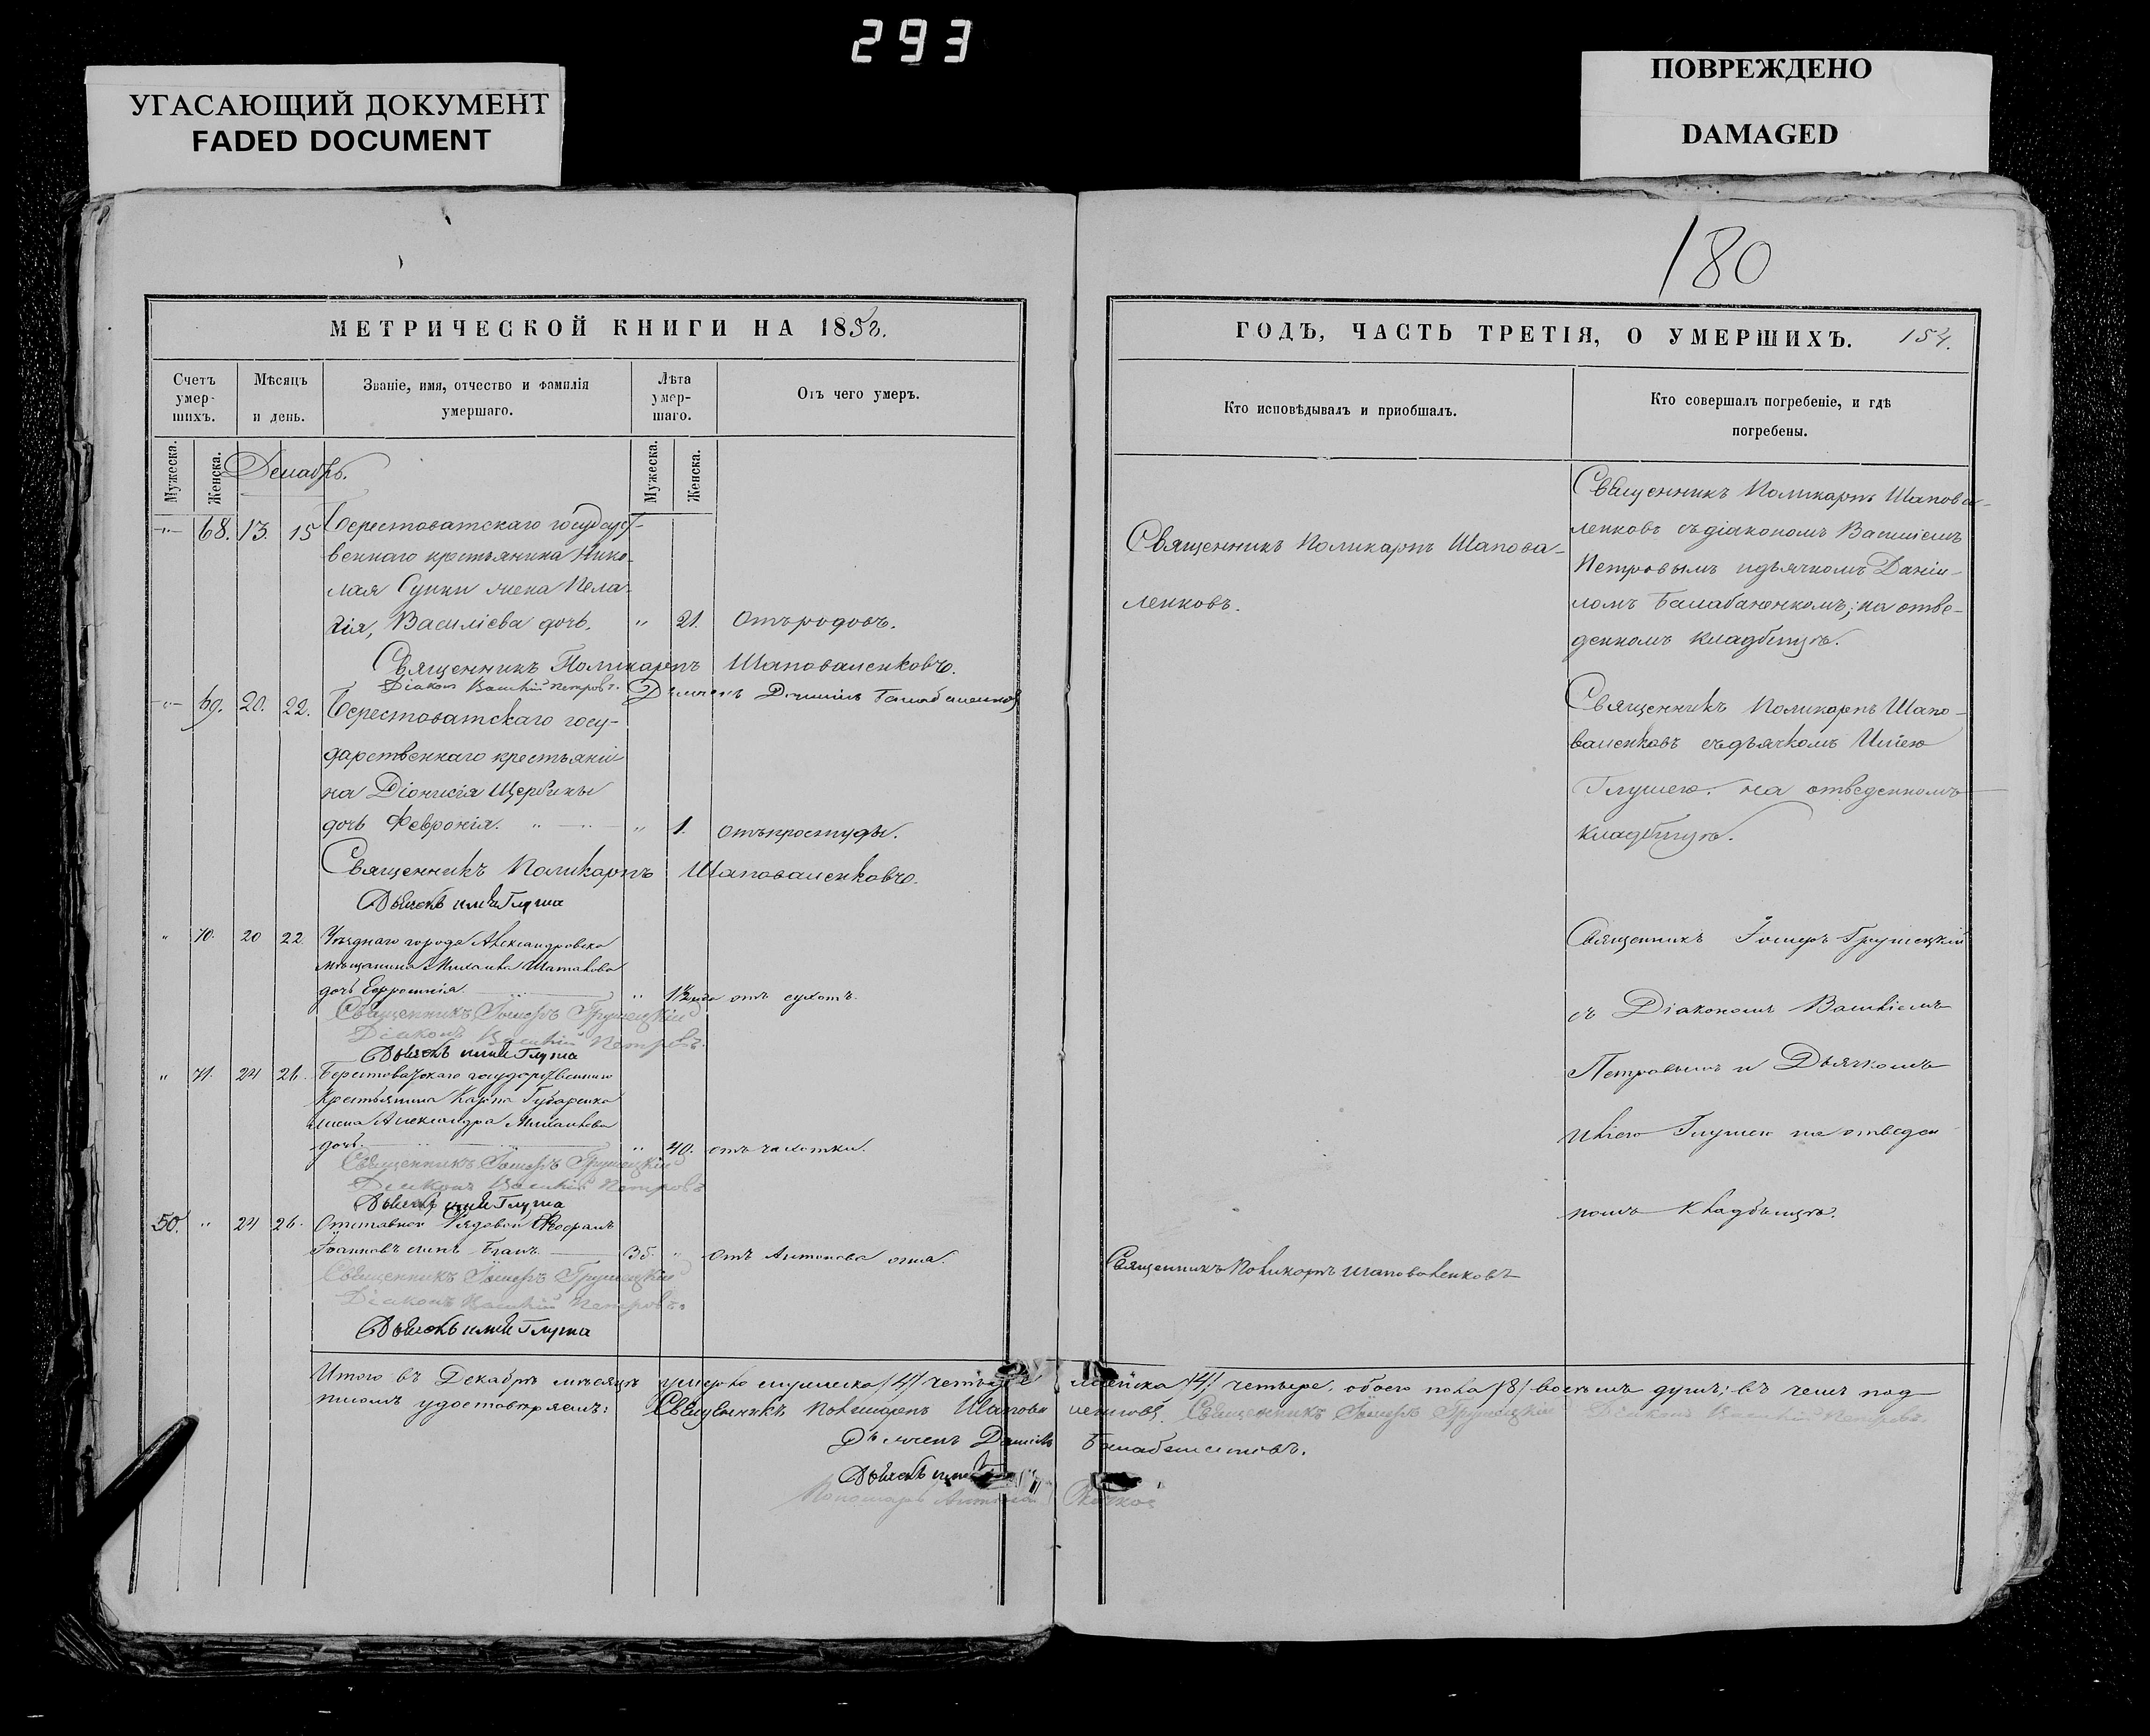 293
УГАСАЮЩИЙ ДОКУМЕНТ
FADED DOCUMENT
ПОВРЕЖДЕНО
DAMAGED
180
МЕТРИЧЕСКОЙ КНИГИ НА 1852.
Счетъ умер-шихъ.
Мѣсяцъ и день.
Званіе, имя, отчество и фамилія умершаго.
Лѣта умер-шаго.
Отъ чего умеръ.
Мужеска.
Женска.
Мужеска.
Женска.
Декабрь.
68. 13. 15 Берестоватскаго государст-
веннаго крестьянина Нико-
лая Сушки жена Пела-
гія, Василіева дочь. " 21. Отъ родовъ.
Священникъ Поликарпъ Шаповаленковъ.
Діаконъ Василій Петровъ. Дьячекъ Даніилъ Балабаненков
69. 20. 22. Берестоватскаго госу-
дарственнаго крестьяни
на Діонисія Щербины
дочь Февронія. " 1. Отъ простуды.
Священникъ Поликарпъ Шаповаленковъ.
Дьячекъ Илія Глуша
" 70. 20 22. Уѣзднаго города Александровска
мѣщанина Михаила
дочь Ефросинія. " 1½ года отъ сухотъ.
Священникъ Іосифъ Грушецкій
Діаконъ Василій Петровъ.
Дьячекъ Илія Глуша
" 71. 24 26. Берестоватскаго государственнаго
Крестьянина Карпа Губаренка
жена Александра Михаилова
дочь. " 40. отъ чахотки.
Священникъ Іосифъ Грушецкій
Діаконъ Василій Петровъ
Дьячекъ Илія Глуша
50. " 24 26. Отставной Рядовой
Іоанновъ сынъ 36. " Отъ Антонова огня.
Священникъ Іосифъ Грушецкій
Діаконъ Василій Петровъ.
Дьячекъ Илія Глуша
ГОДЪ, ЧАСТЬ ТРЕТІЯ, О УМЕРШИХЪ. 154.
Кто исповѣдывалъ и приобщалъ.
Кто совершалъ погребеніе, и гдѣ погребены.
Священникъ Поликарпъ Шапова-
ленковъ.
Священникъ Поликарпъ Шапова-
ленковъ съ діакономъ Василіемъ
Петровымъ и дьячкомъ Даніи-
ломъ Балабаненкомъ; на отве-
денномъ кладбищѣ.
Священникъ Поликарпъ Шапо-
валенковъ съ дьячкомъ Иліею
Глушею. на отведенномъ
кладбищѣ.
Священникъ Іосифъ Грушецкій
съ Діакономъ Василіемъ
Петровымъ и Дьячкомъ
Иліею Глушею на отведен
номъ Кладбищѣ.
Священникъ Поликарпъ Шаповаленковъ
Итого въ Декабрѣ мѣсяцѣ умерло мужеска /4/ четыре женска /4/ четыре, обоего пола /8/ восемь душъ; въ чемъ под
писомъ удостовѣряемъ: Священникъ Поликарпъ Шаповаленковъ. Священникъ Іосифъ Грушецкій Діаконъ Василій Петровъ.
Дьячекъ Даніилъ Балабаненковъ.
Дьячекъ Илія
Пономарь